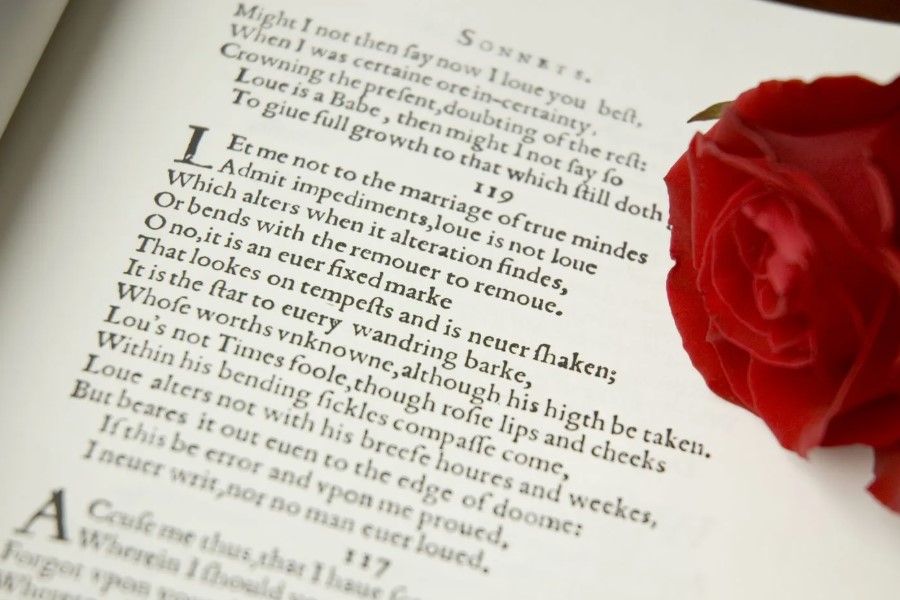 SONNETS.
Might I not then ſay now I loue you beſt,
When I was certaine ore in-certainty,
Crowning the preſent,doubting of the reſt:
Loue is a Babe , then might I not ſay ſo
To giue full growth to that which ſtill doth
119
LEt me not to the marriage of true mindes
Admit impediments,loue is not loue
Which alters when it alteration findes,
Or bends with the remouer to remoue.
O no,it is an euer fixed marke
That lookes on tempeſts and is neuer ſhaken;
It is the ſtar to euery wandring barke,
Whoſe worths vnknowne,although his higth be taken.
Lou's not Times foole,though roſie lips and cheeks
Within his bending ſickles compaſſe come,
Loue alters not with his breefe houres and weekes,
But beares it out euen to the edge of doome:
If this be error and vpon me proued,
I neuer writ,nor no man euer loued.
117
ACcuſe me thus,that I haue
Wherein I ſhould
Forgot vpon